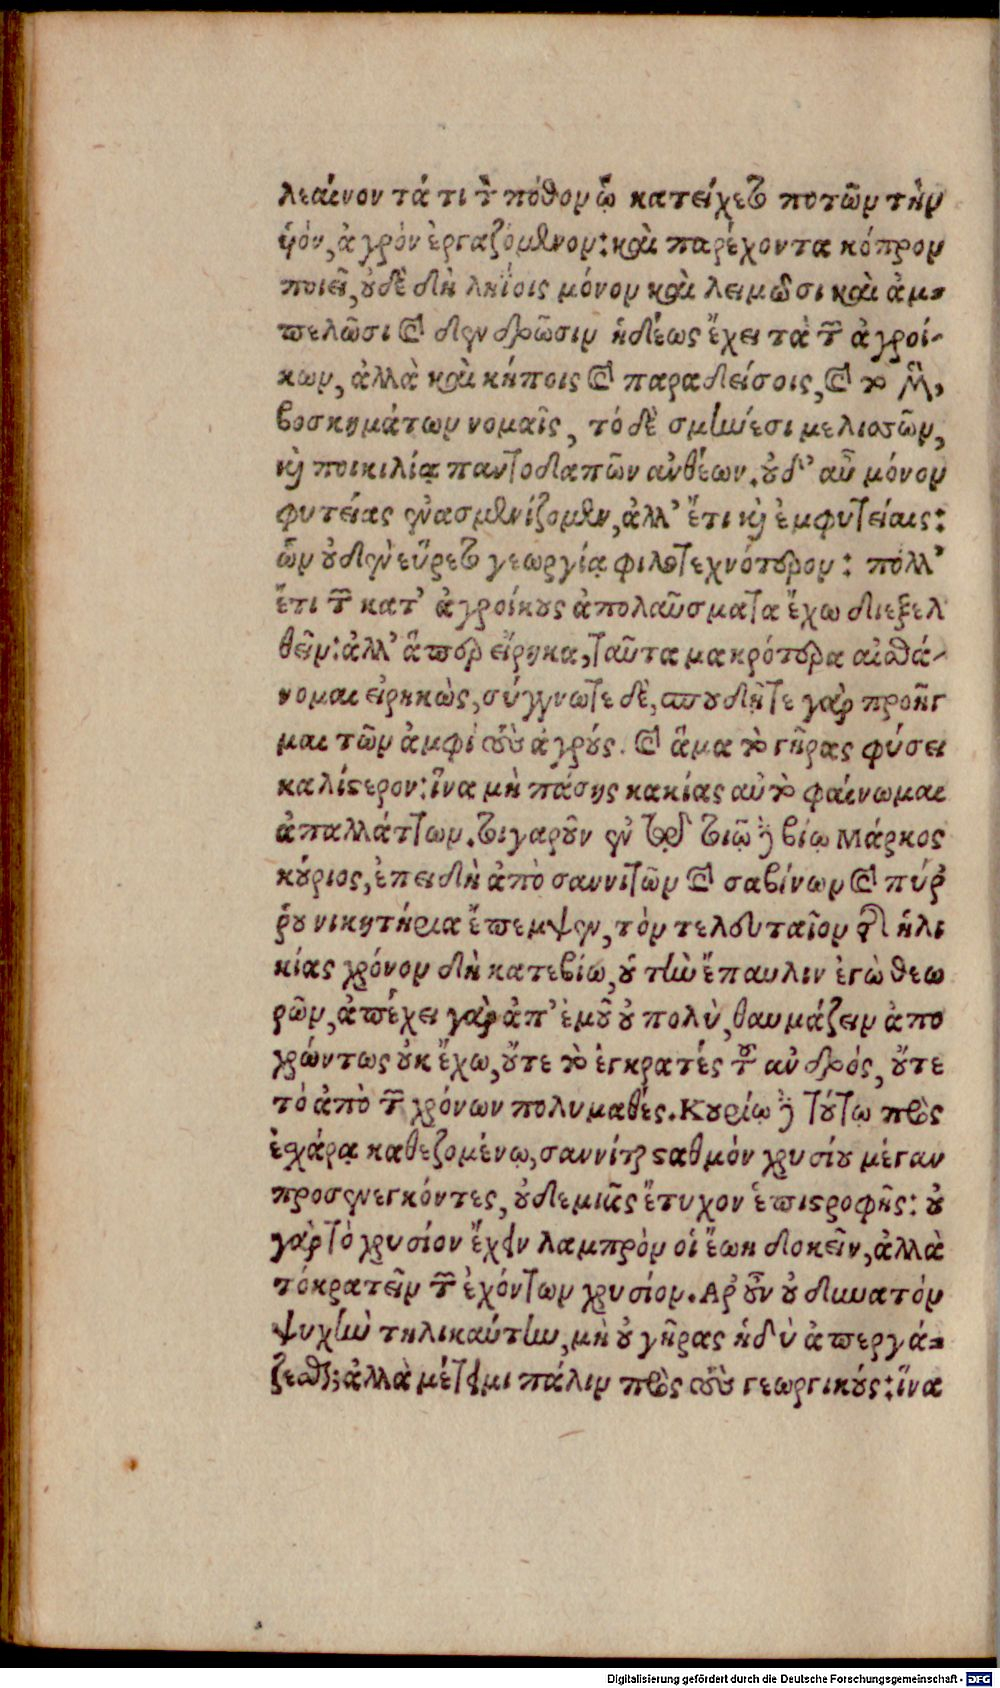 λεαίνον τά τι τὸν πόθον ᾧ κατείχετο ποτῶν τὴν
ἱόν, ἀγρόν ἐργαζόμενον: καὶ παρέχοντα κόπρον
ποιεῖ, ὐδὲ δὴ ληΐοις μόνον καὶ λειμῶσι καὶ ἀμ-
πελῶσι καὶ δένδρωσιν ἡδέως ἔχει τὰ τῶν ἀγροί-
κων, ἀλλὰ καὶ κήποις καὶ παραδείσοις, καὶ το
βοσκημάτων νομαῖς, τό δὲ σμήνεσι μελιοσῶν,
καὶ ποικιλίᾳ παντοδαπῶν ἀνθέων. ὐδ' αὖ μόνον
φυτείας ἐνασμενίζομεν, ἀλλ' ἔτι καὶ ἐμφυτείαις:
ὧν οὐδὲν εὕρετο γεωργίᾳ φιλοτεχνότερον: πόλλ'
ἔτι τῶν κατ' ἀγροίκους ἀπολαῦσματα ἔχω διεξελ
θεῖν: ἀλλ' ἅπερ εἴρηκα, ταῦτα μακρότερα αἰσθά-
νομαι εἰρηκὼς, σύγγνωτε δὲ, σπουδῇ τε γὰρ προῆγ
μαι τῶν ἀμφὶ τοὺς ἀγρούς. καὶ ἅμα τὸ γῆρας φύσει
καλίστερον: ἵνα μὴ πάσης κακίας αὐτὸ φαίνωμαι
ἀπαλλάττων. τιγαροῦν ἐν τῷδε τιῷ τῷ βίῳ Μάρκος
κύριος, ἐπειδὴ ἀπὸ σαννιτῶν καὶ σαβίνων καὶ πύρ
ρου νικητήρια ἔπεμψεν, τὸν τελευταῖον τῆς ἡλι
κίας χρόνον δὴ κατεβίω, οὗ τὴν ἔπαυλιν ἐγὼ θεω
ρῶν, ἀπέχει γὰρ ἀπ' ἐμοῦ οὐ πολὺ, θαυμάζειν ἀπο
χρώντως οὐκ ἔχω, οὔτε τὸ ἐγκρατές τοῦ ἀνδρός, οὔτε
τό ἀπὸ τῶν χρόνων πολυμαθές. Κυρίῳ τῷ τούτῳ πρὸς
ἐσχάρᾳ καθεζομένῳ, σαννίται σαθμόν χρυσίου μέγαν
προσενεγκόντες, οὐδεμιᾶς ἔτυχον ἐπιστροφῆς: οὐ
γὰρ τὸ χρυσίον ἔχειν λαμπρὸν οἱ ἔωη δοκεῖν, ἀλλὰ
τόκρατεῖν τῶν ἐχόντων χρυσίον. Αρ' οὖν οὐ δυνατόν
ψυχὴν τηλικαύτην, μὴ οὐ γῆρας ἡδὺ ἀπεργά-
ζεσθαι; ἀλλὰ μέτειμι πάλιν πρὸς τοὺς γεωργικούς: ἵνα
Digitalisierung gefördert durch die Deutsche Forschungsgemeinschaft - DFG